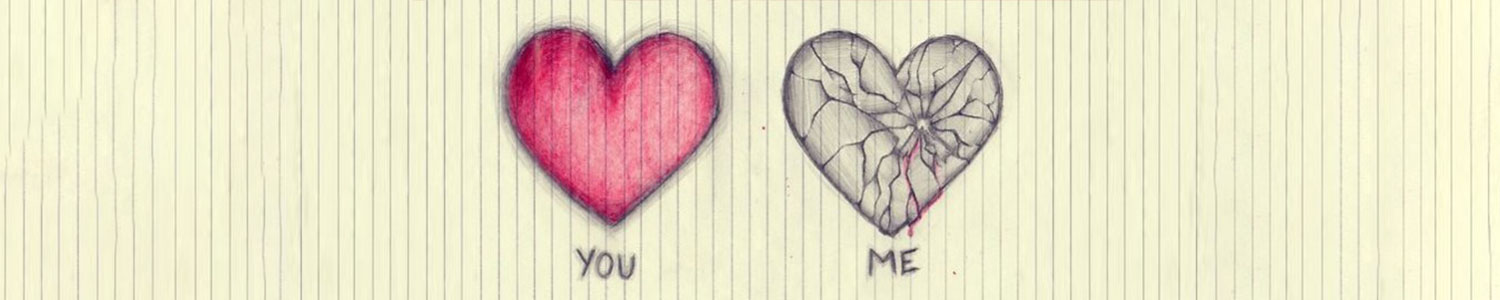 YOU ME